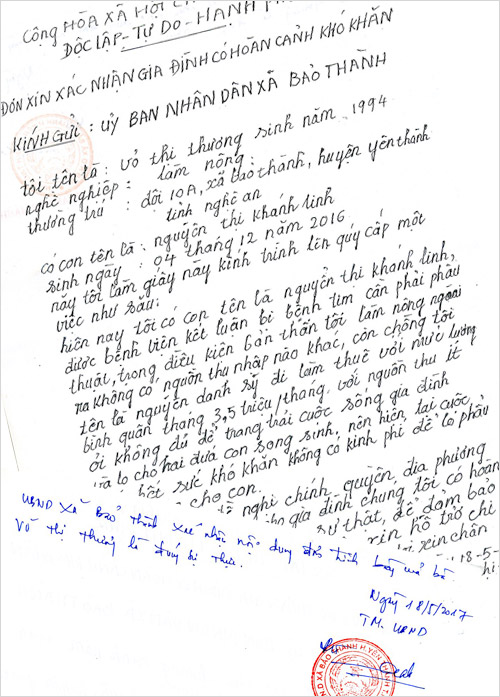 CỘNG HÒA XÃ HỘI
ĐỘC LẬP - TỰ DO - HẠNH
ĐƠN XIN XÁC NHẬN GIA ĐÌNH CÓ HOÀN CẢNH KHÓ KHĂN
KÍNH GỬI : UỶ BAN NHÂN DÂN XÃ BẢO THÀNH
tôi tên là : võ thị thương sinh năm 1994
nghề nghiệp : làm nông
thường trú : đội 10A, xã bảo thành, huyện yên thành
tỉnh nghệ an
có con tên là : nguyễn thị khánh linh
sinh ngày : 04 tháng 12 năm 2016
nay tôi làm giấy này kính trình lên quý cấp một
việc như sau:
hiện nay tôi có con tên là nguyễn thị khánh linh,
được bệnh viện kết luận bị bệnh tim cần phải phẫu
thuật, trong điều kiện bản thân tôi làm nông ngoài
ra không có nguồn thu nhập nào khác, còn chồng tôi
tên là nguyễn danh sỹ đi làm thuê với mức lương
bình quân tháng 3,5 triệu/tháng. với nguồn thu ít
ỏi không đủ để trang trải cuộc sống gia đình
và lo cho hai đứa con song sinh, nên hiện tại cuộc
hết sức khó khăn không có kinh phí để lo phẫu
cho con.
nghị chính quyền, địa phương
gia đình chúng tôi có hoàn
sự thật, để đảm bảo
xin hỗ trợ chi
xin chân
18-5-
UBND xã Bảo Thành xác nhận nội dung đơn trình bày của bà
Võ Thị Thương là đúng sự thực.
Ngày 18/5/2017
TM. UBND
XÃ BẢO THÀNH H. YÊN THÀNH